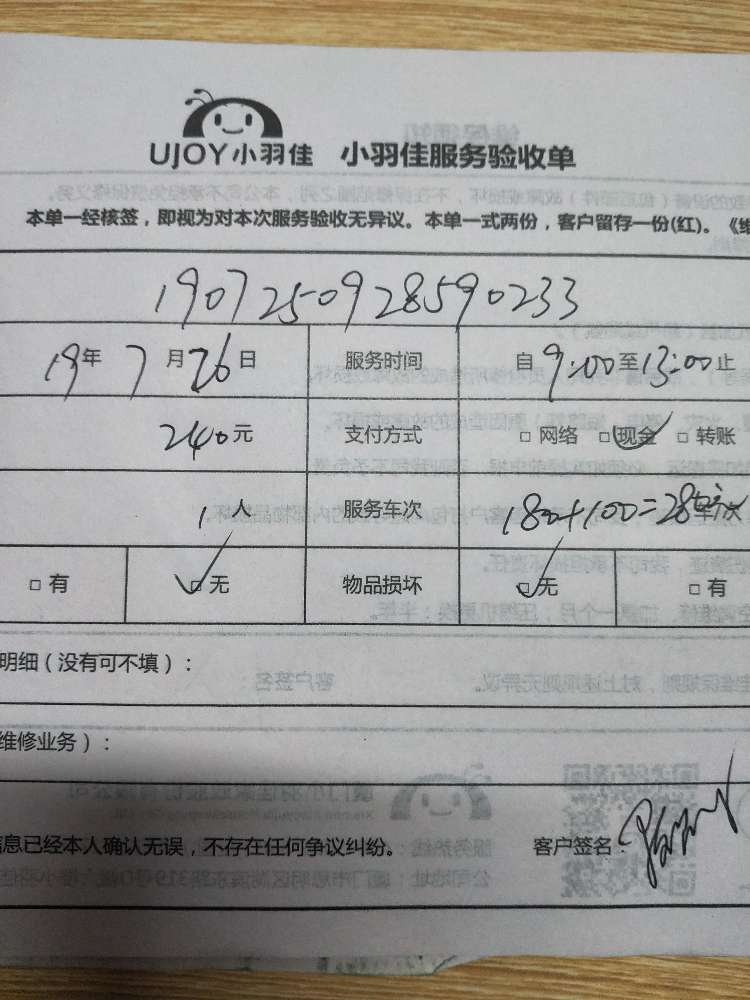 UJOY小羽佳 小羽佳服务验收单
本单一经核签，即视为对本次服务验收无异议。本单一式两份，客户留存一份(红)。《维
1907250928590233
19年 7月26日 服务时间 自9:00至13:00止
240元 支付方式 □ 网络 □现金 □ 转账
1人 服务车次 180+100=280
□ 有 □无 物品损坏 □无 □ 有
明细（没有可不填）：
维修业务）：
信息已经本人确认无误，不存在任何争议纠纷。 客户签名：